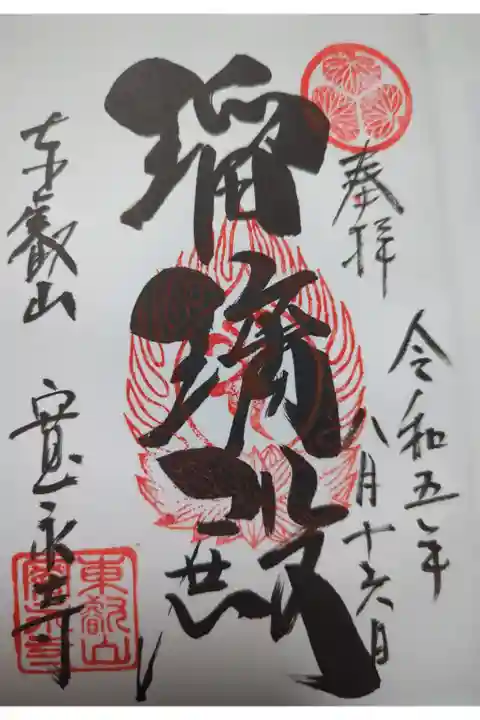 奉拝
令和五年
八月十六日
瑠璃殿
東叡山
寛永寺
東叡山
寛永寺